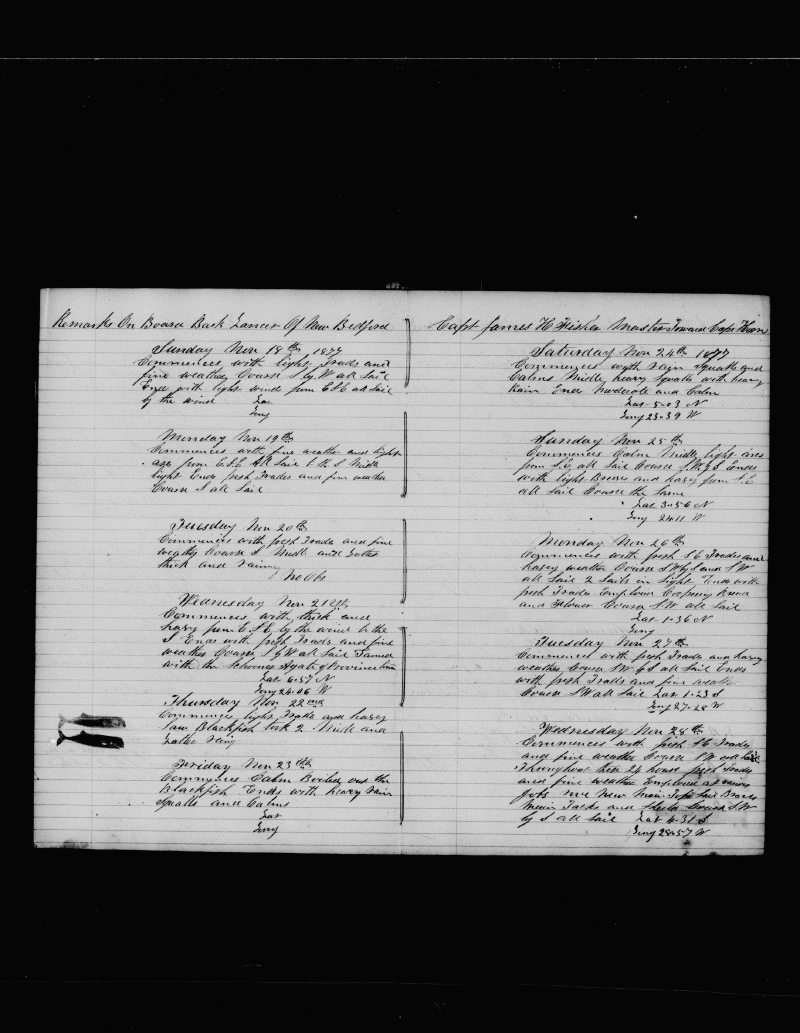 Remarks On Board Bark Lancer Of New Bedford
Sunday Nov 18th 1877
Commences with light Trades and
fine weather Course S by W all Sail
Ends with light wind from ESE all Sail
by the wind Lat
Long
Monday Nov 19th
Commences with fine weather and light
airs from ESE All Sail to the S Middle
light Ends fresh Trades and fine weather
Course S all Sail
Tuesday Nov 20th
Commences with fresh Trades and fine
weather Course S Middle and Latter
thick and rainy
No Obs
Wednesday Nov 21st
Commences with thick and
hazy from ESE by the wind to the
S Ends with fresh Trades and fine
weather Course S by W all Sail
with the Schooner Agate of Provincetown
Lat 6.57 N
Long 24.06 W
Thursday Nov 22nd
Commences light Trade and hazy
Saw Blackfish took 2 Middle and
Latter
Friday Nov 23th
Commences Calm Boiled out the
Blackfish Ends with heavy rain
Squalls and Calms
Lat
Long
Capt James H Fisher Master Toward Cape Horn
Saturday Nov 24th 1877
Commences with rain Squalls and
Calms Middle heavy Squalls with heavy
Rain Ends Moderate and Calm
Lat 5.03 N
Long 23.39 W
Sunday Nov 25th
Commences Calm Middle light airs
from SE all Sail Course SW by S Ends
with light Breeze and hazy from SE
all Sail Course the Same
Lat 3.56 N
Long 24.11 W
Monday Nov 26th
Commences with fresh SE Trades and
hazy weather Course SW by S and SW
all Sail 2 Sails in Sight Ends with
fresh Trades Employed Coopering Bread
and Flour Course SW all Sail
Lat 1.36 N
Long
Tuesday Nov 27th
Commences with fresh Trades and hazy
weather Course SW by S all Sail Ends
with fresh Trades and fine weather
Course SW all Sail Lat 1.23 S
Long 27.28 W
Wednesday Nov 28th
Commences with fresh SE Trades
and fine weather Course SW all Sail
Throughout these 24 hours fresh Trades
and fine weather Employed at various
Jobs New Main Top Sail Braces
Main Tacks and Sheets Course SW
by S all Sail Lat 4.31 S
Long 28.57 W